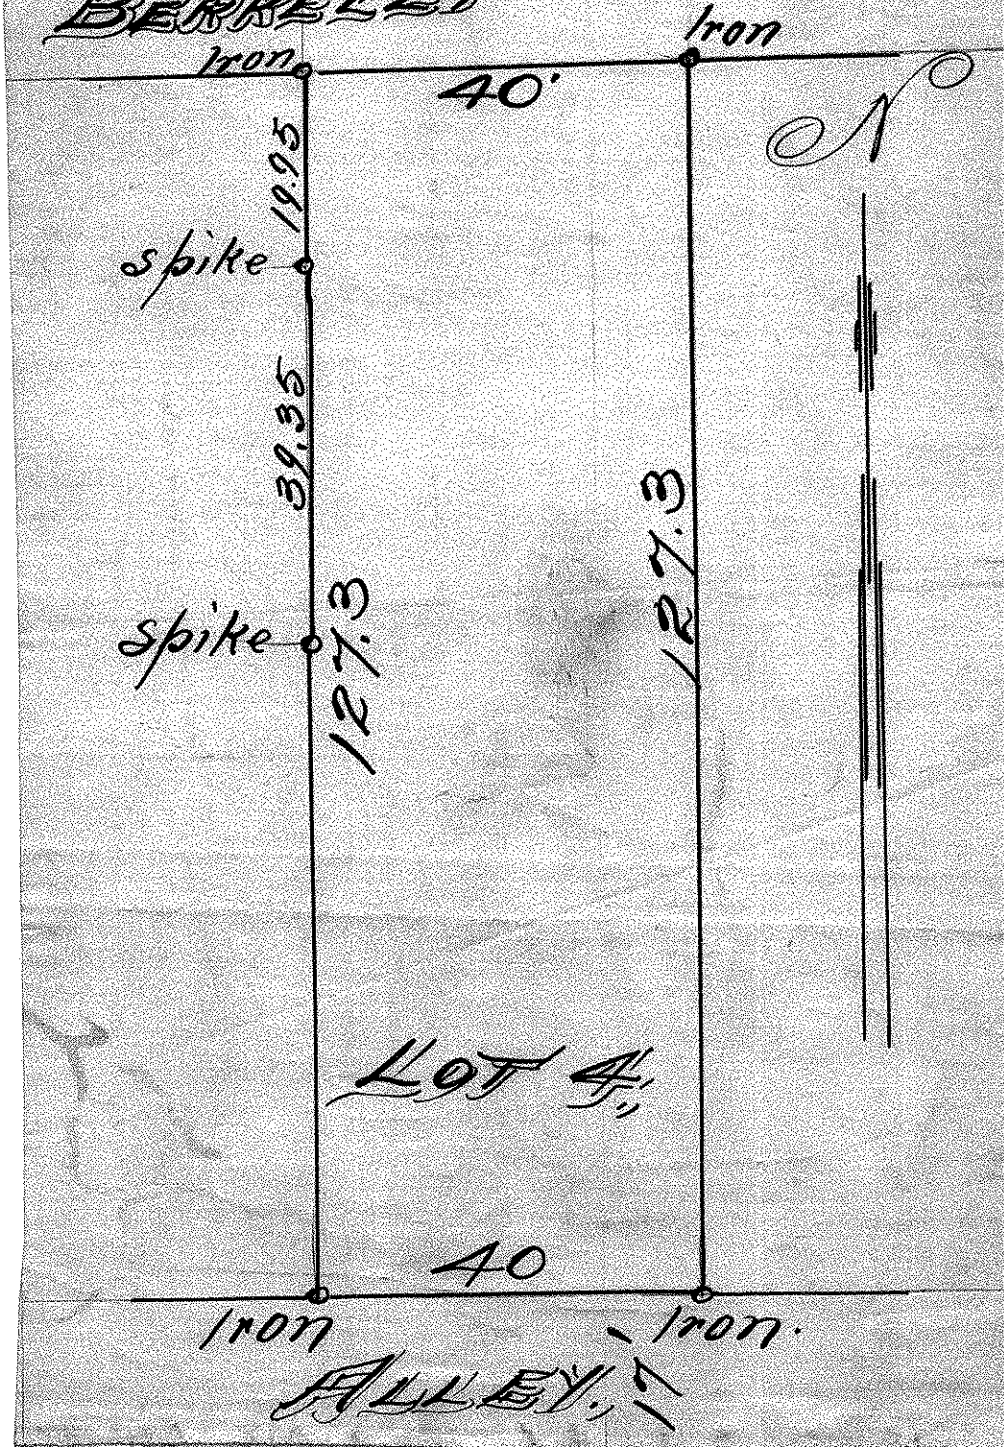 BERKELEY
Iron
Iron
40'
N
19.95
spike
39.35
127.3
127.3
spike
LOT 4
40
Iron
Iron.
ALLEY.
17'